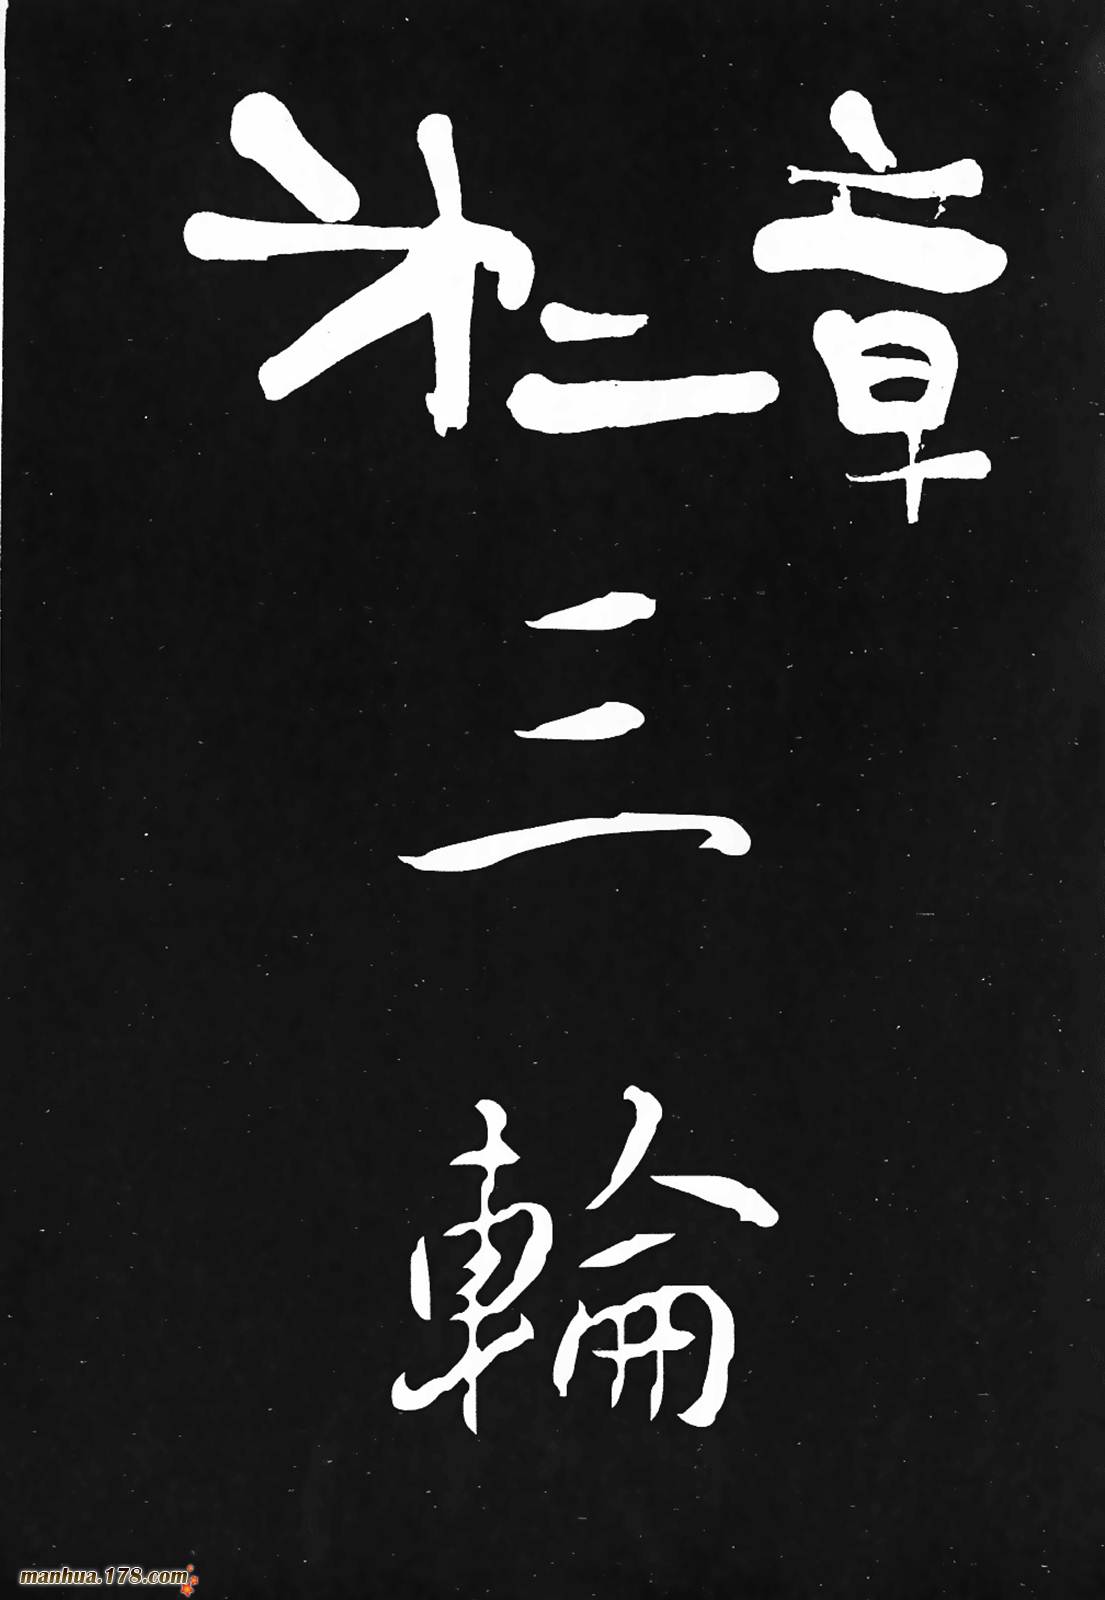 㐧二章
三
輪
manhua.178.com